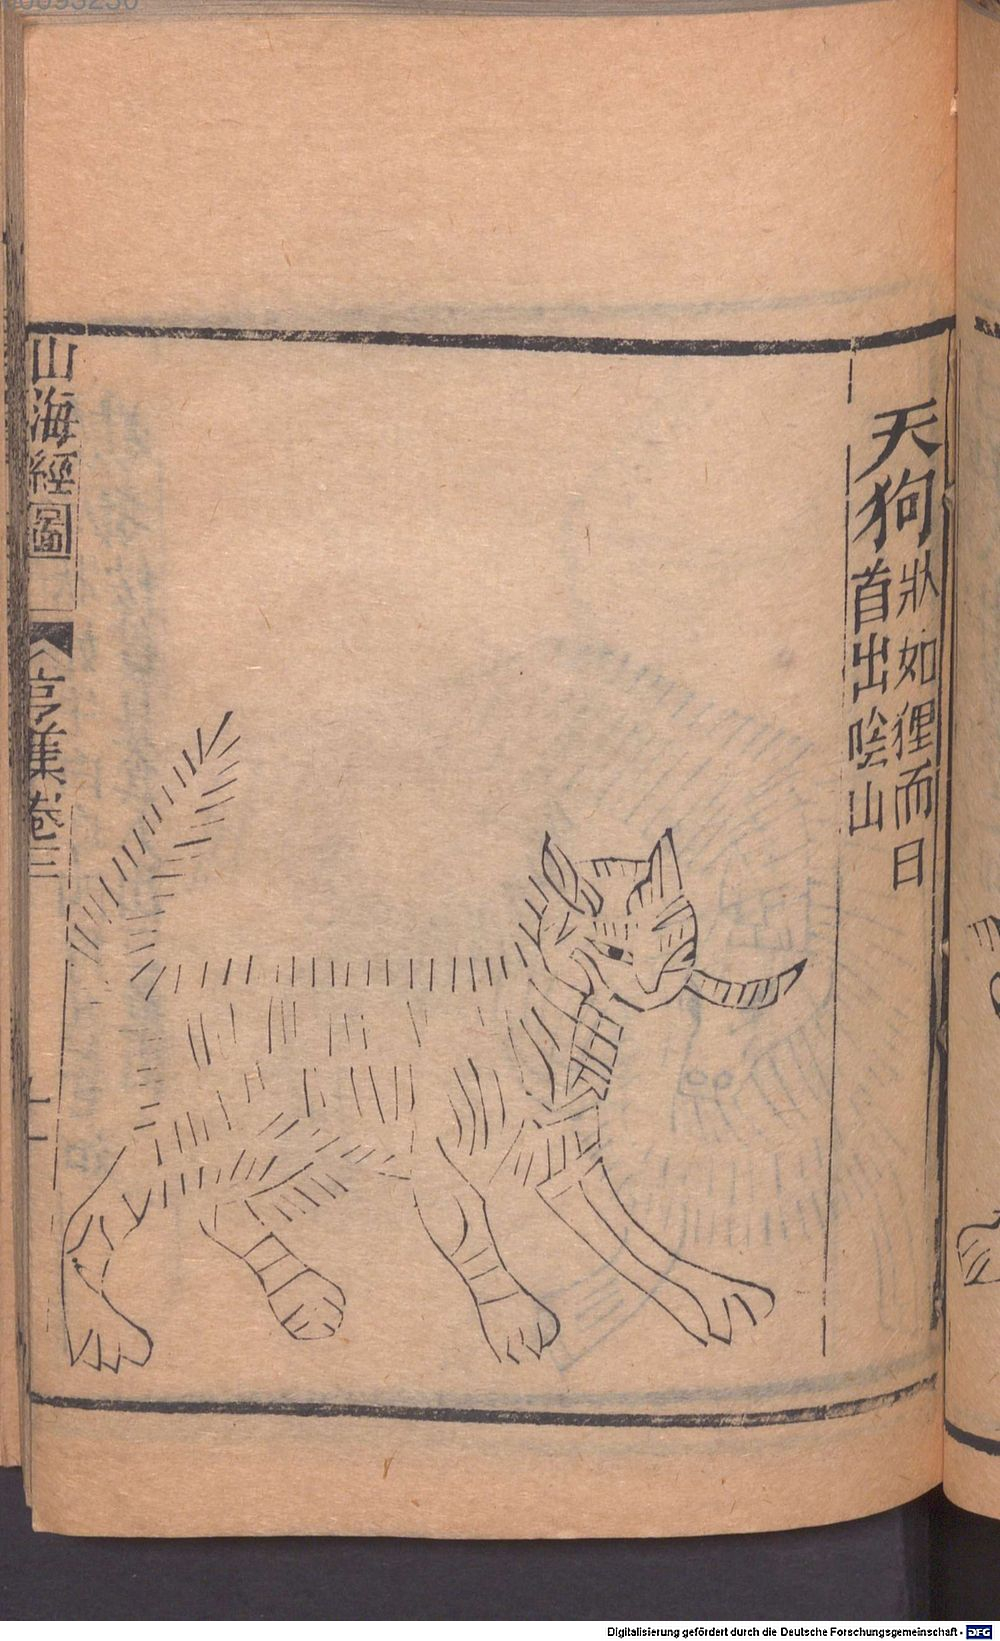 天狗狀如狸而日
首出陰山
山海經圖
亨集卷三
十一
Digitalisierung gefördert durch die Deutsche Forschungsgemeinschaft - DFG